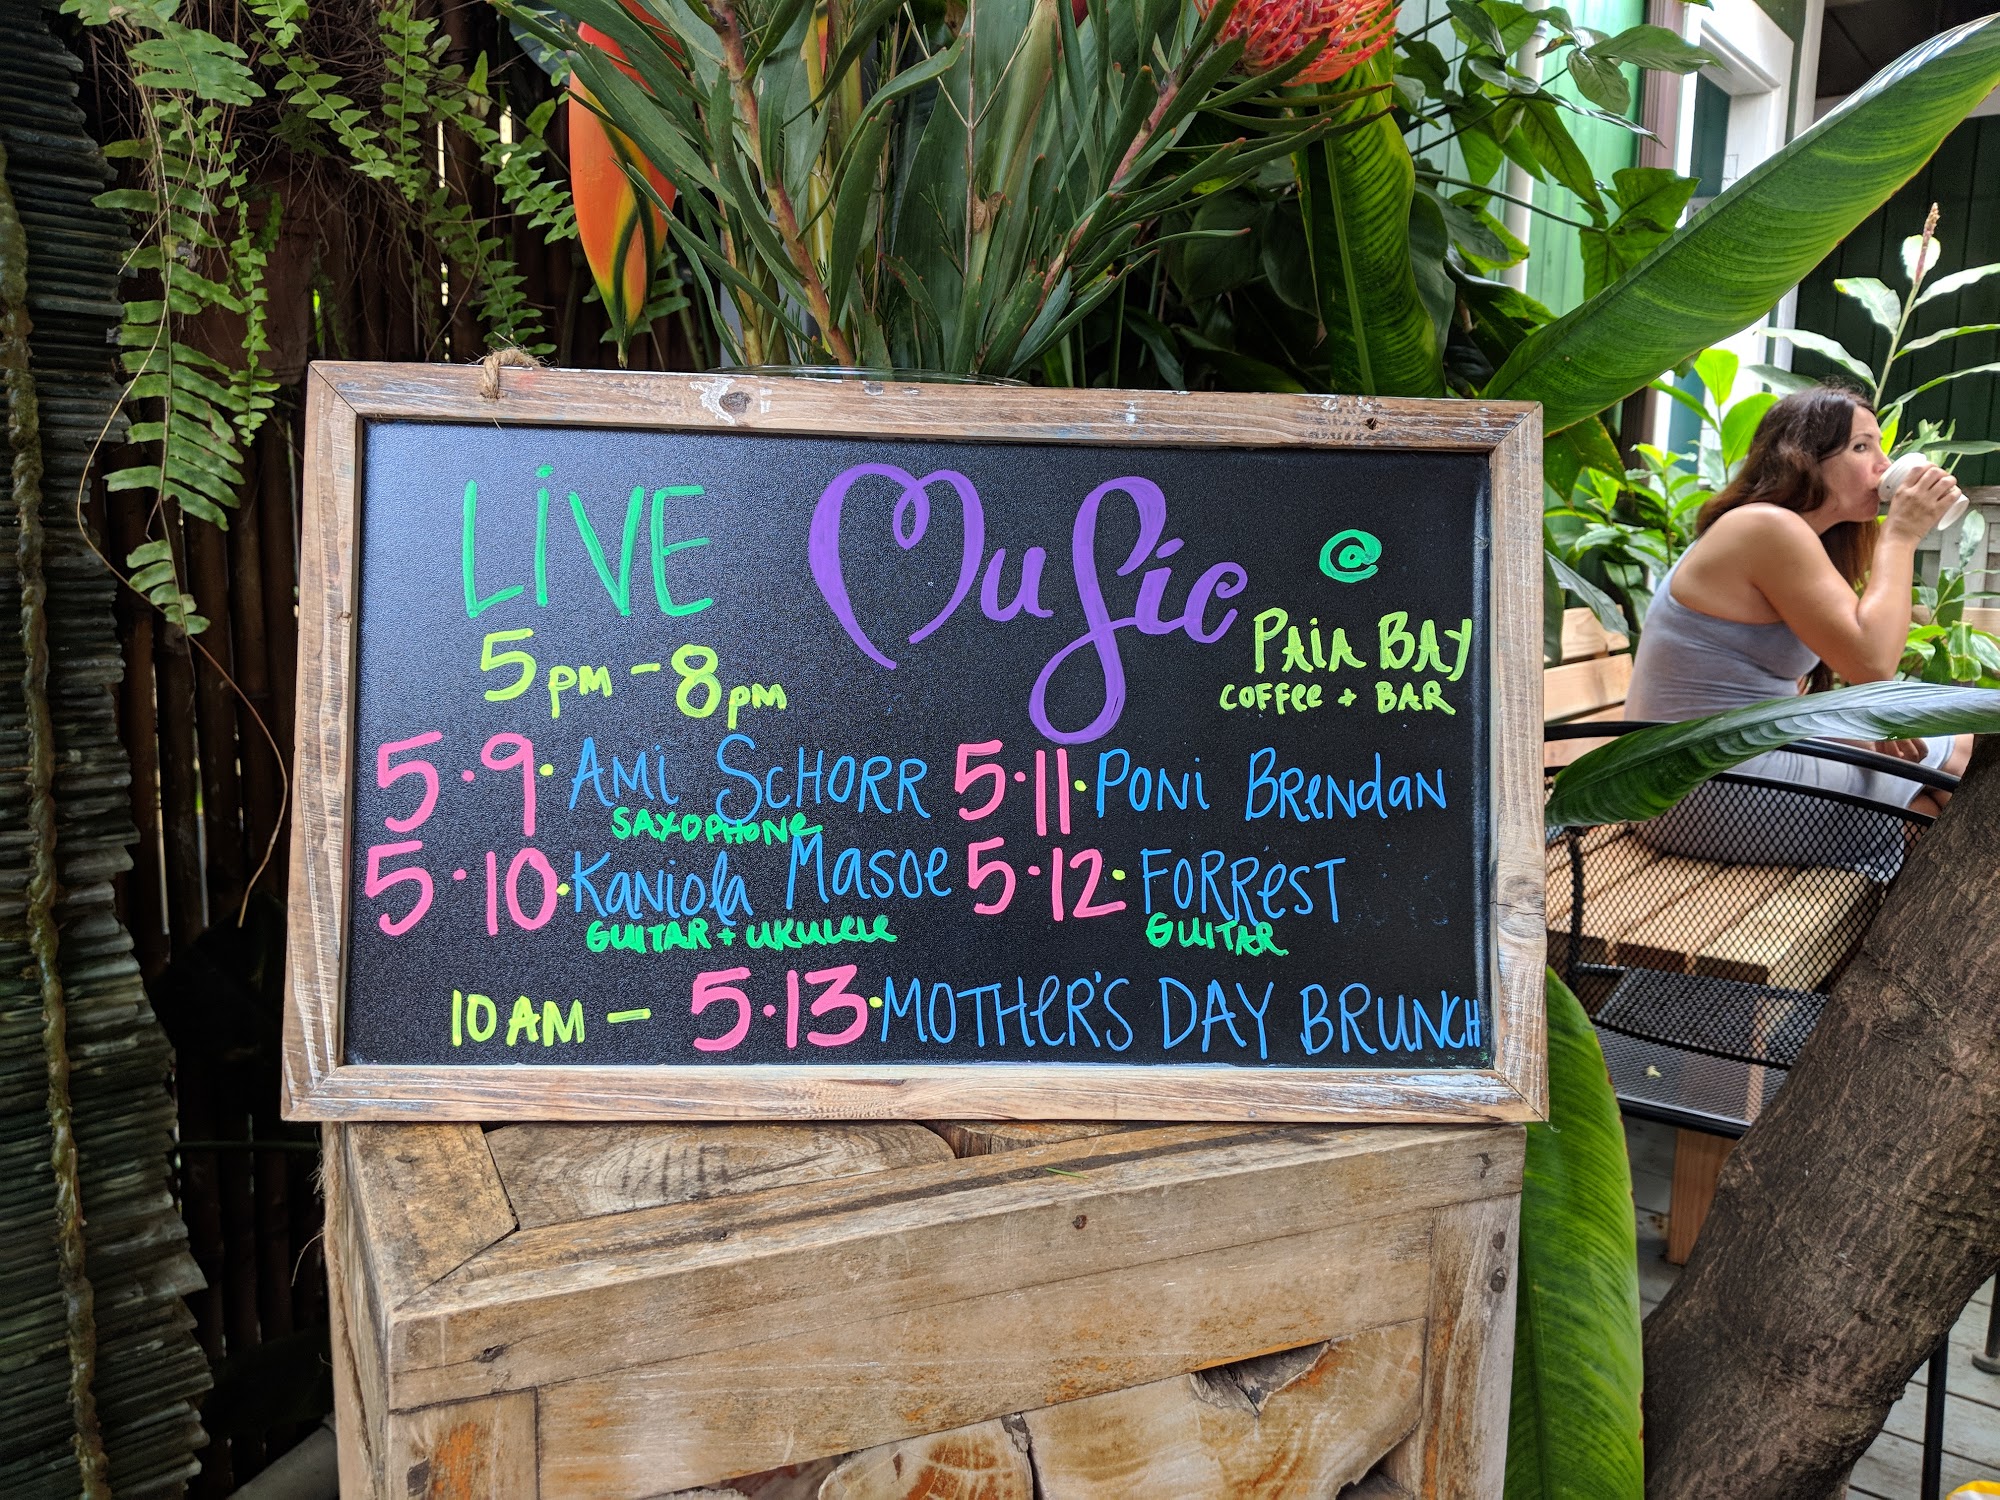 LiVE Music @
5pm - 8pm
PAiA BAY
COFFee + BAR
5.9. AMi SCHORR
SAXOPHONe
5.10. KANiOla MASOe
GUITAR + UKULELE
5.11. PONi BRENdAN
5.12. FORReST
GUITAR
10 AM - 5.13. MOTHeR'S DAY BRUNCH